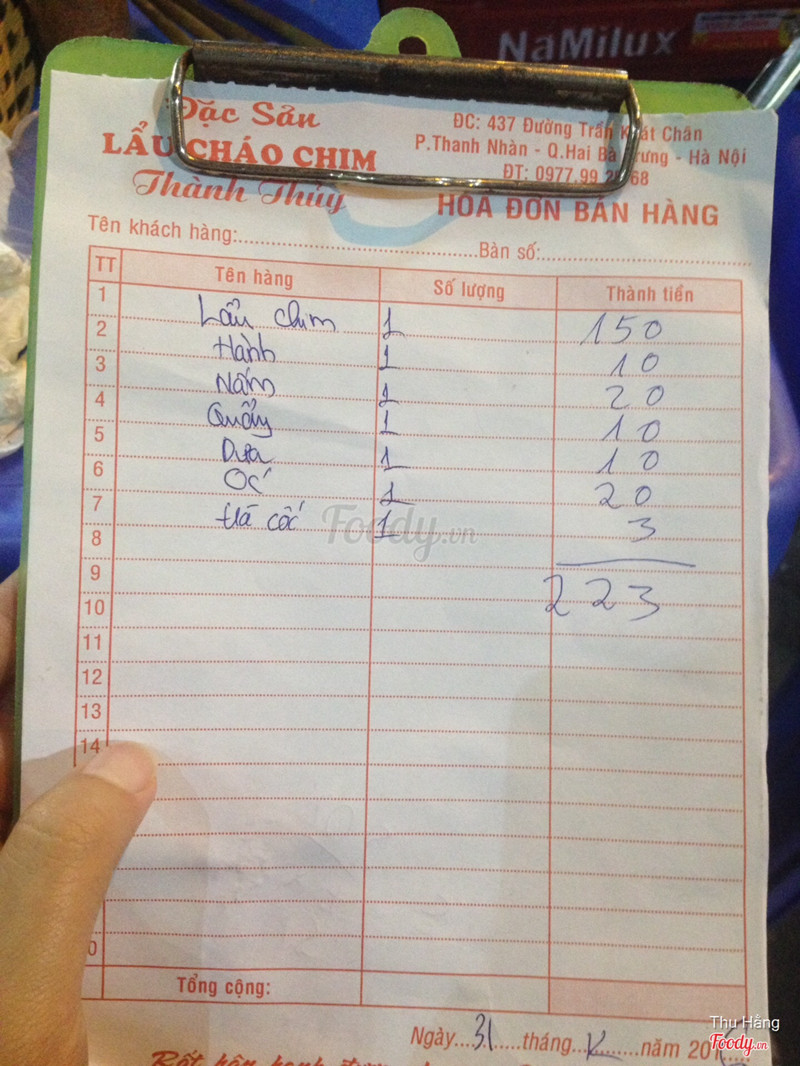 NaMilux
Đặc Sản
LẨU CHÁO CHIM
Thành Thủy
ĐC: 437 Đường Trần Khát Chân
P.Thanh Nhàn - Q.Hai Bà Trưng - Hà Nội
ĐT: 0977.99 2 68
HÓA ĐƠN BÁN HÀNG
Tên khách hàng: Bàn số:
TT Tên hàng Số lượng Thành tiền
1 Lẩu chim 1 150
2 Hành 1 10
3 Nấm 1 20
4 Quẩy 1 10
5 Dưa 1 10
6 Ốc 1 20
7 trà cốc 1 3
8
9 223
10
11
12
13
14
0
Tổng cộng:
Ngày 31 tháng 12 năm 201
Foody.vn
Thu Hằng
Foody.vn